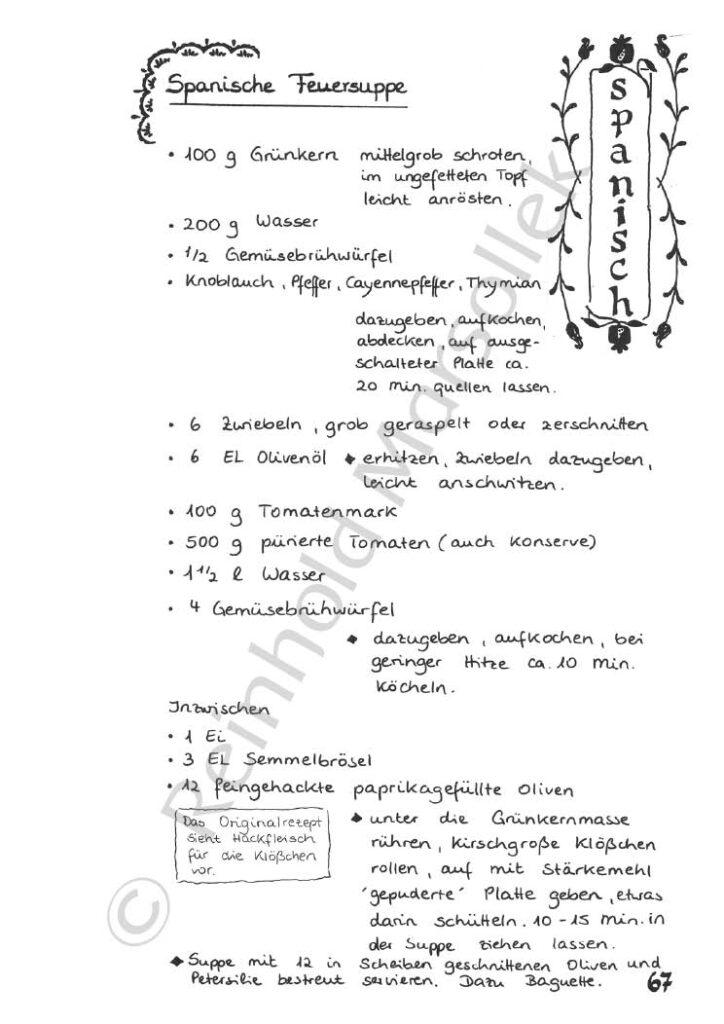 Spanische Feuersuppe
spanisch
• 100 g Grünkern mittelgrob schroten,
im ungefetteten Topf
leicht anrösten.
• 200 g Wasser
• 1/2 Gemüsebrühwürfel
• Knoblauch, Pfeffer, Cayennepfeffer, Thymian
dazugeben, aufkochen,
abdecken, auf ausge-
schalteter Platte ca.
20 min. quellen lassen.
• 6 Zwiebeln, grob geraspelt oder zerschnitten
• 6 EL Olivenöl ◆ erhitzen, Zwiebeln dazugeben,
leicht anschwitzen.
• 100 g Tomatenmark
• 500 g pürierte Tomaten (auch Konserve)
• 1 1/2 l Wasser
• 4 Gemüsebrühwürfel
◆ dazugeben, aufkochen, bei
geringer Hitze ca. 10 min.
köcheln.
Inzwischen
• 1 Ei
• 3 EL Semmelbrösel
• 12 feingehackte paprikagefüllte Oliven
Das Originalrezept
sieht Hackfleisch
für die Klößchen
vor.
◆ unter die Grünkernmasse
rühren, kirschgroße Klößchen
rollen, auf mit Stärkemehl
'gepuderte' Platte geben, etwas
darin schütteln. 10-15 min. in
der Suppe ziehen lassen.
◆ Suppe mit 12 in Scheiben geschnittenen Oliven und
Petersilie bestreut servieren. Dazu Baguette.
67
© Reinhold Marsollek